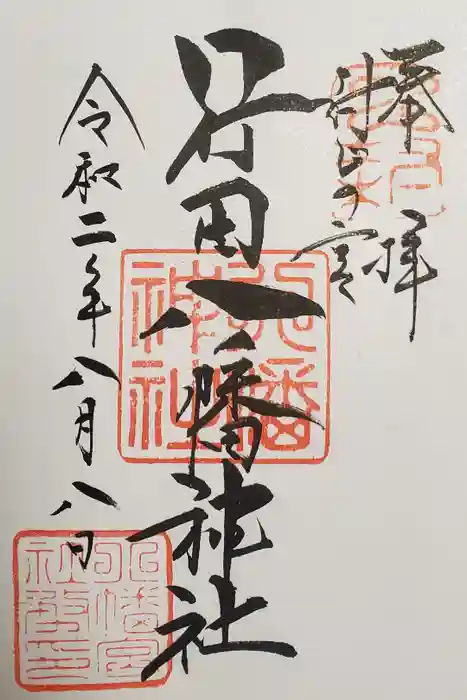 奉拝
の宮
田八幡神社
令和二年八月八日
八幡
神社
八幡宮
社務印